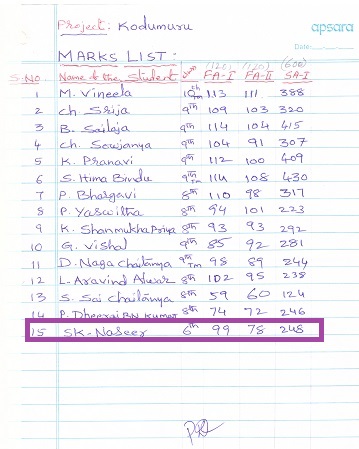 Project: Kodumuru
apsara
Date:
MARKS LIST:
(120) (120) (600)
S.No. Name of the Student FA-I FA-II SA-I
1 M. Vineela 10th Tm 113 111 388
2 Ch Srija 9th 109 103 320
3 B. Sailaja 9th 114 104 415
4 Ch. Sowjanya 9th 104 91 307
5 K. Pranavi 9th 112 100 409
6 S. Hima Bindu 9th Tm 114 108 430
7 P. Bhargavi 8th 110 98 317
8 P. Yaswitha 8th 94 101 223
9 K. Shanmukha Priya 8th 93 93 292
10 G. Vishal 9th 85 92 281
11 D. Naga Chaitanya 9th Tm 98 89 244
12 L. Aravind 8th 102 95 238
13 S. Sai Chaitanya 8th 59 60 124
14 P. Dheeraj BN Kumar 8th 74 72 246
15 SK. Naseer 6th 99 78 248